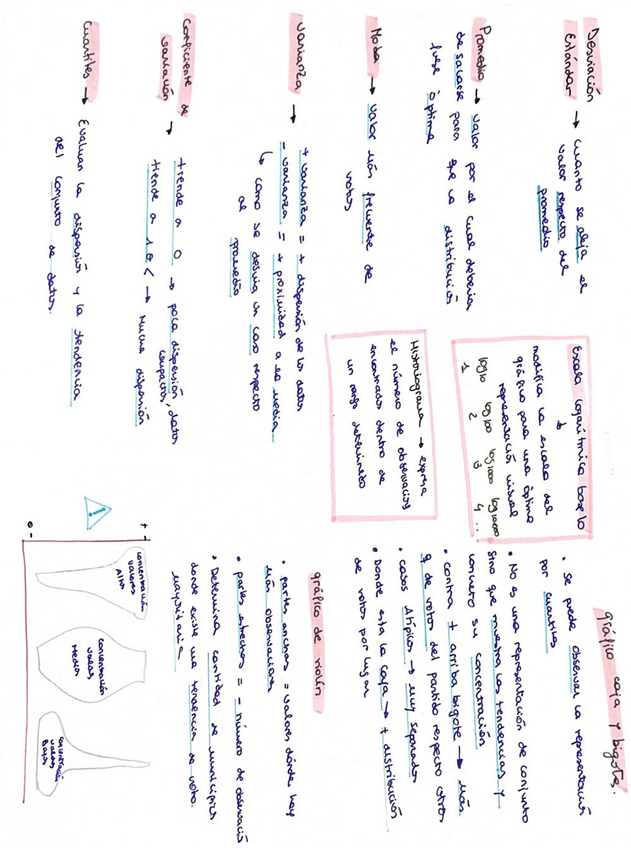 Desviación
Estándar → Cuanto se aleja el
valor respecto del
promedio
Promedio → Valor por el cual debería
de sacarse para que la distribución
fuse óptima
Moda → Valor más frecuente de
votos
Varianza → + varianza = + dispersión de los datos
- varianza = + proximidad a la media
↳ como se desvia un caso respecto
al promedio
Coeficiente de
variación → tiende a 0 → poca dispersión, datos
compactos
tiende a 1 <→ Mucha dispersión
Cuantiles → Evaluan la dispersión y la tendencia
del conjunto de datos.
Escala logarítmica base 10
↓
modifica la escala del
gráfico para una óptima
representación visual
log10 log100 log1000 log10000
1 2 3 4 ...
Histograma → expresa
el número de observaciones
encontradas dentro de
un rango determinado
gráfico caja y bigotes.
• Se puede observar la representación
por cuantiles
• No es una representación de conjunto
sino que muestra las tendencias y
concreto su concentración
• contra + arriba bigote → más
q de votos del partido respecto otros
• casos Atípicos → muy separados
• Donde esta la caja → + distribución
de votos por lugar
gráfico de violín
• partes anchas = valores dónde hay
más observaciones
• partes estrechas = - número de observació
• Determina cantidad de municipios
donde existe una tendencia de voto.
mayoritaria
!
+
concentración
valores
Altos
concentración
valores
Medios
concentración
valores
Bajos
0 -